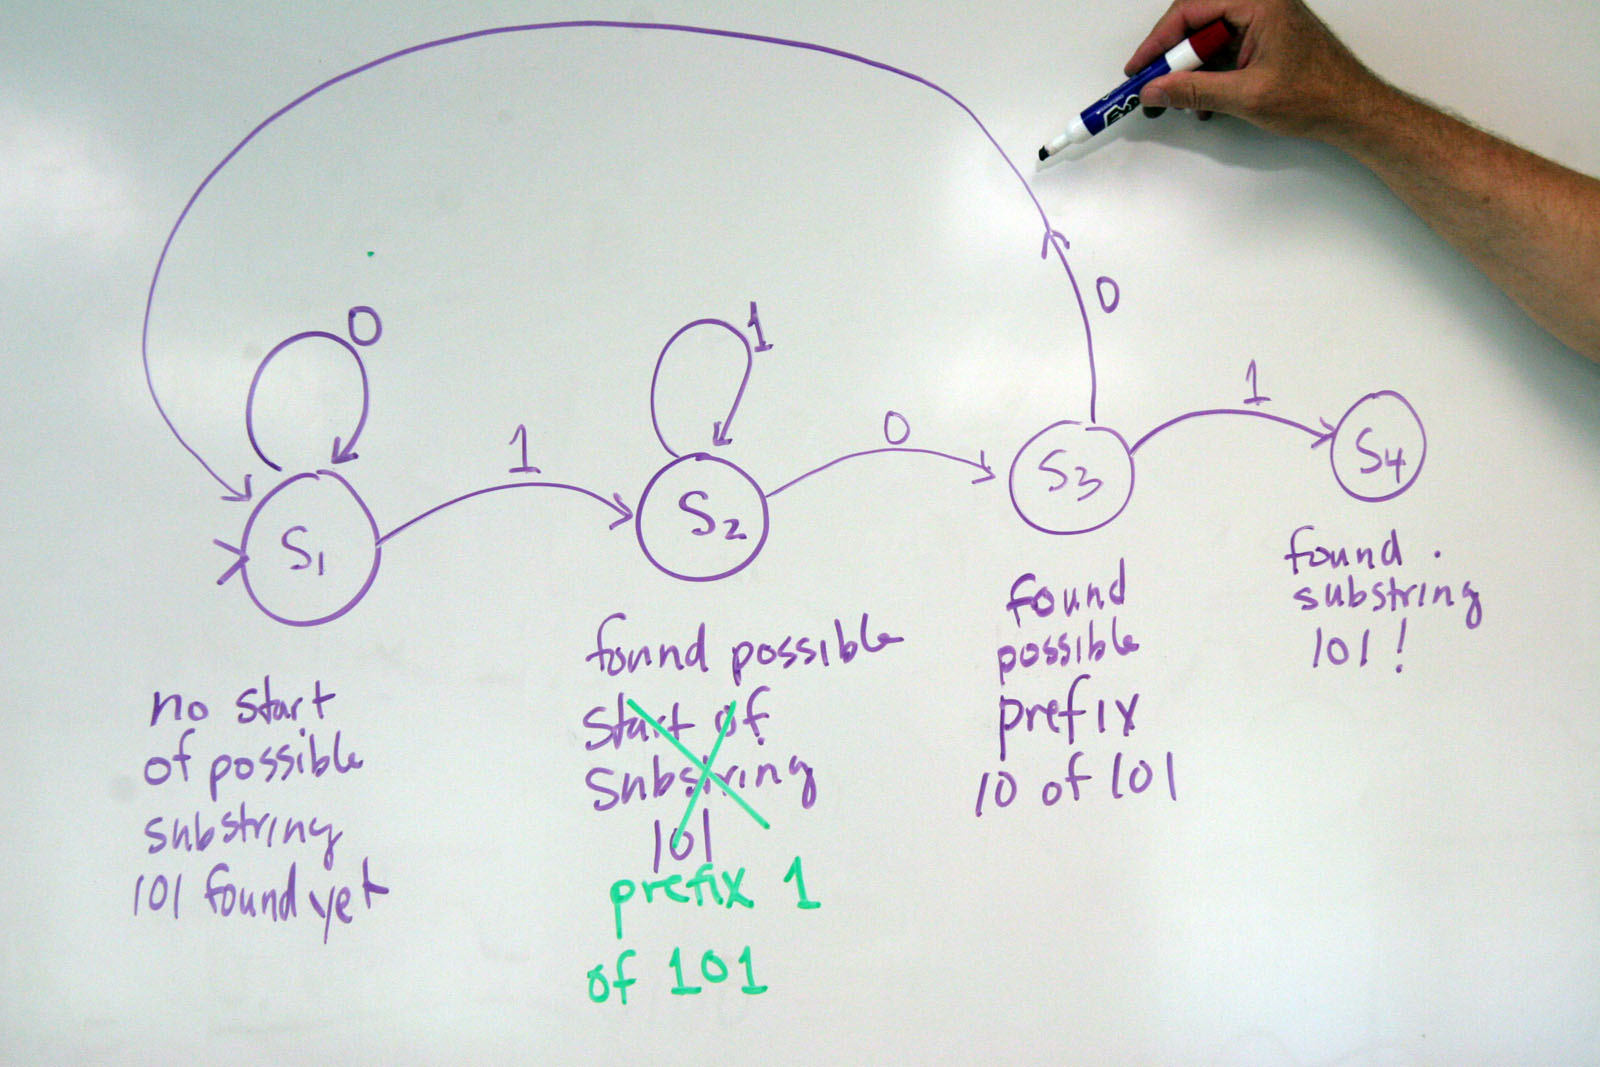 0
1
0
1
0
1
S1
S2
S3
S4
no start
of possible
substring
101 found yet
found possible
start of
substring
101
prefix 1
of 101
found
possible
prefix
10 of 101
found
substring
101!